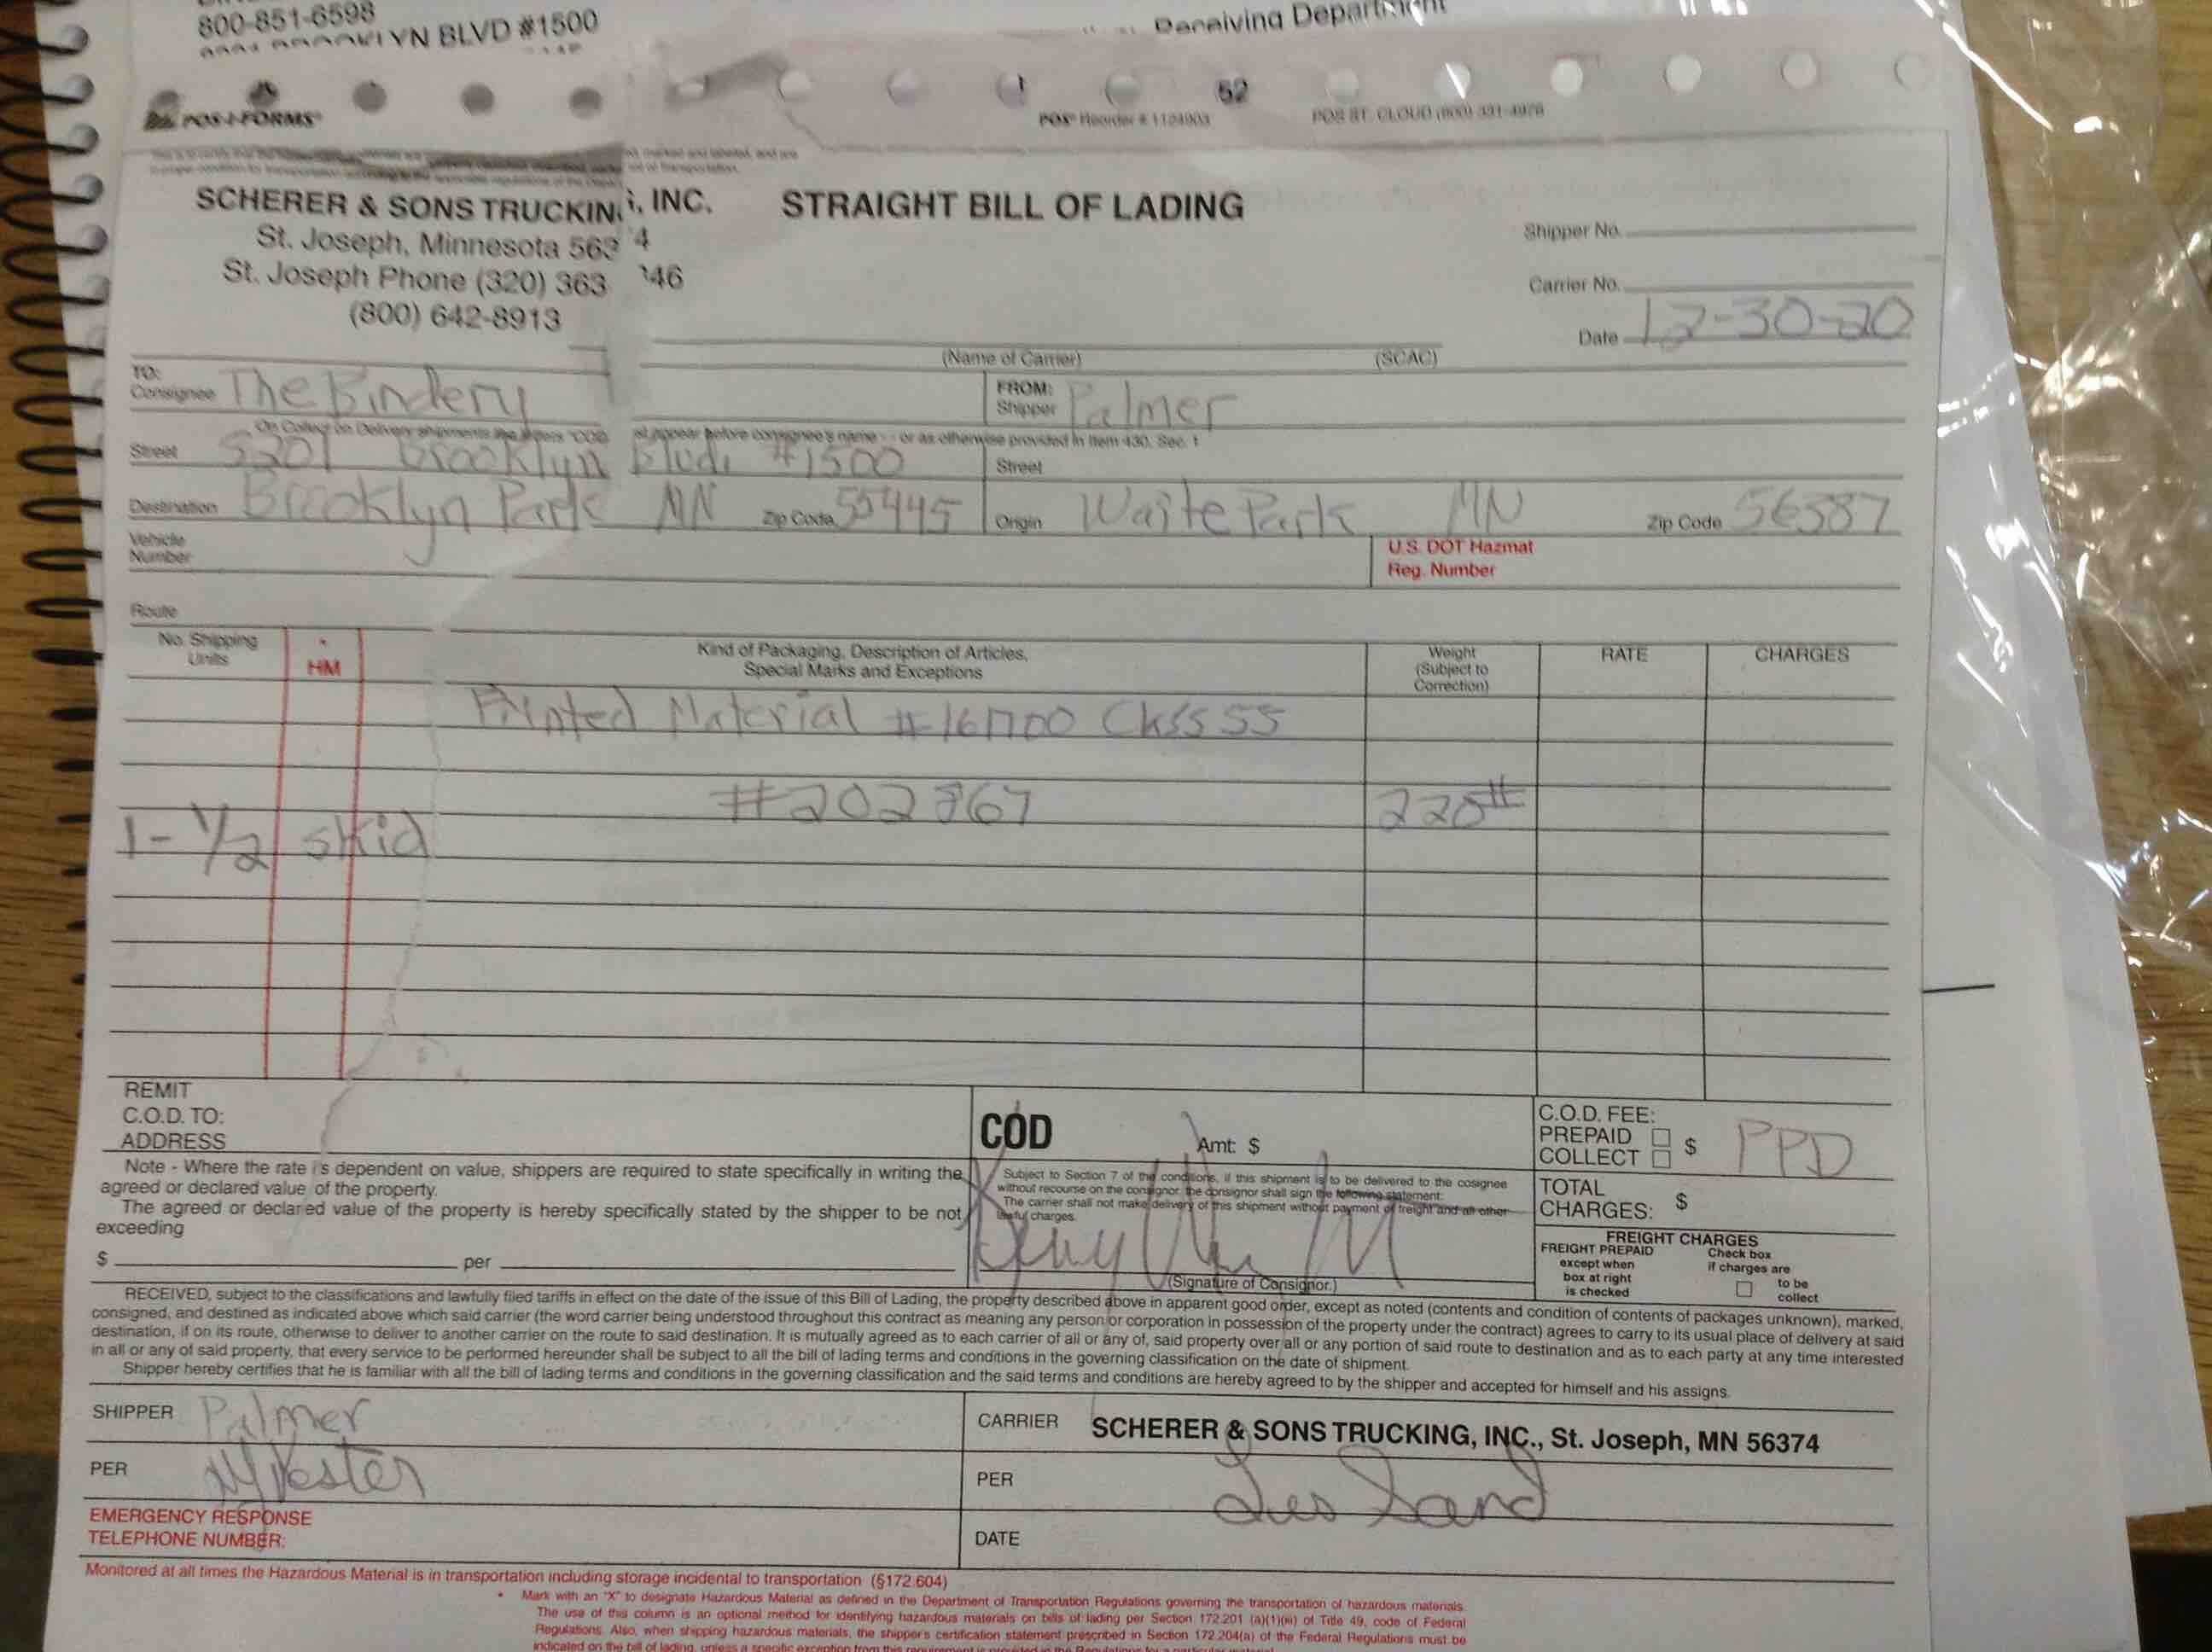 800-851-6598
BROOKLYN BLVD #1500
Receiving Department
52
POS-I-FORMS®
POS® Reorder # 1124903
POS ST. CLOUD (800) 331-4976
SCHERER & SONS TRUCKIN , INC.
STRAIGHT BILL OF LADING
St. Joseph, Minnesota 563 4
St. Joseph Phone (320) 363 46
(800) 642-8913
Shipper No.
Carrier No.
Date 12-30-20
(Name of Carrier) (SCAC)
TO:
Consignee The Bindery
FROM:
Shipper Palmer
On Collect on Delivery shipments the letters "COD" appear before consignee's name - or as otherwise provided in Item 430, Sec. 1
Street Brooklyn Blvd. #1500
Street
Destination Brooklyn Park MN Zip Code 55445
Origin Waite Park MN Zip Code 56387
Vehicle
Number
U.S. DOT Hazmat
Reg. Number
Route
No. Shipping
Units
*
HM
Kind of Packaging, Description of Articles,
Special Marks and Exceptions
Weight
(Subject to
Correction)
RATE
CHARGES
Printed Material #161700 Class 55
#202867 220#
1- 1/2 skid
REMIT
C.O.D. TO:
ADDRESS
COD
Amt: $
C.O.D. FEE:
PREPAID
COLLECT $ PPD
Note - Where the rate is dependent on value, shippers are required to state specifically in writing the
agreed or declared value of the property.
The agreed or declared value of the property is hereby specifically stated by the shipper to be not
exceeding
$ per
Subject to Section 7 of the conditions, if this shipment is to be delivered to the cosignee
without recourse on the consignor, the consignor shall sign the following statement:
The carrier shall not make delivery of this shipment without payment of freight and all other
lawful charges.
(Signature of Consignor.)
TOTAL
CHARGES: $
FREIGHT CHARGES
FREIGHT PREPAID
except when
box at right
is checked
Check box
if charges are
to be
collect
RECEIVED, subject to the classifications and lawfully filed tariffs in effect on the date of the issue of this Bill of Lading, the property described above in apparent good order, except as noted (contents and condition of contents of packages unknown), marked,
consigned, and destined as indicated above which said carrier (the word carrier being understood throughout this contract as meaning any person or corporation in possession of the property under the contract) agrees to carry to its usual place of delivery at said
destination, if on its route, otherwise to deliver to another carrier on the route to said destination. It is mutually agreed as to each carrier of all or any of, said property over all or any portion of said route to destination and as to each party at any time interested
in all or any of said property, that every service to be performed hereunder shall be subject to all the bill of lading terms and conditions in the governing classification on the date of shipment.
Shipper hereby certifies that he is familiar with all the bill of lading terms and conditions in the governing classification and the said terms and conditions are hereby agreed to by the shipper and accepted for himself and his assigns.
SHIPPER Palmer
CARRIER SCHERER & SONS TRUCKING, INC., St. Joseph, MN 56374
PER
PER Les Sand
EMERGENCY RESPONSE
TELEPHONE NUMBER:
DATE
Monitored at all times the Hazardous Material is in transportation including storage incidental to transportation (§172.604)
* Mark with an "X" to designate Hazardous Material as defined in the Department of Transportation Regulations governing the transportation of hazardous materials.
The use of this column is an optional method for identifying hazardous materials on bills of lading per Section 172.201 (a)(1)(iii) of Title 49, code of Federal
Regulations. Also, when shipping hazardous materials, the shipper's certification statement prescribed in Section 172.204(a) of the Federal Regulations must be
indicated on the bill of lading, unless a specific exception from this requirement is provided in the Regulations for a particular material.